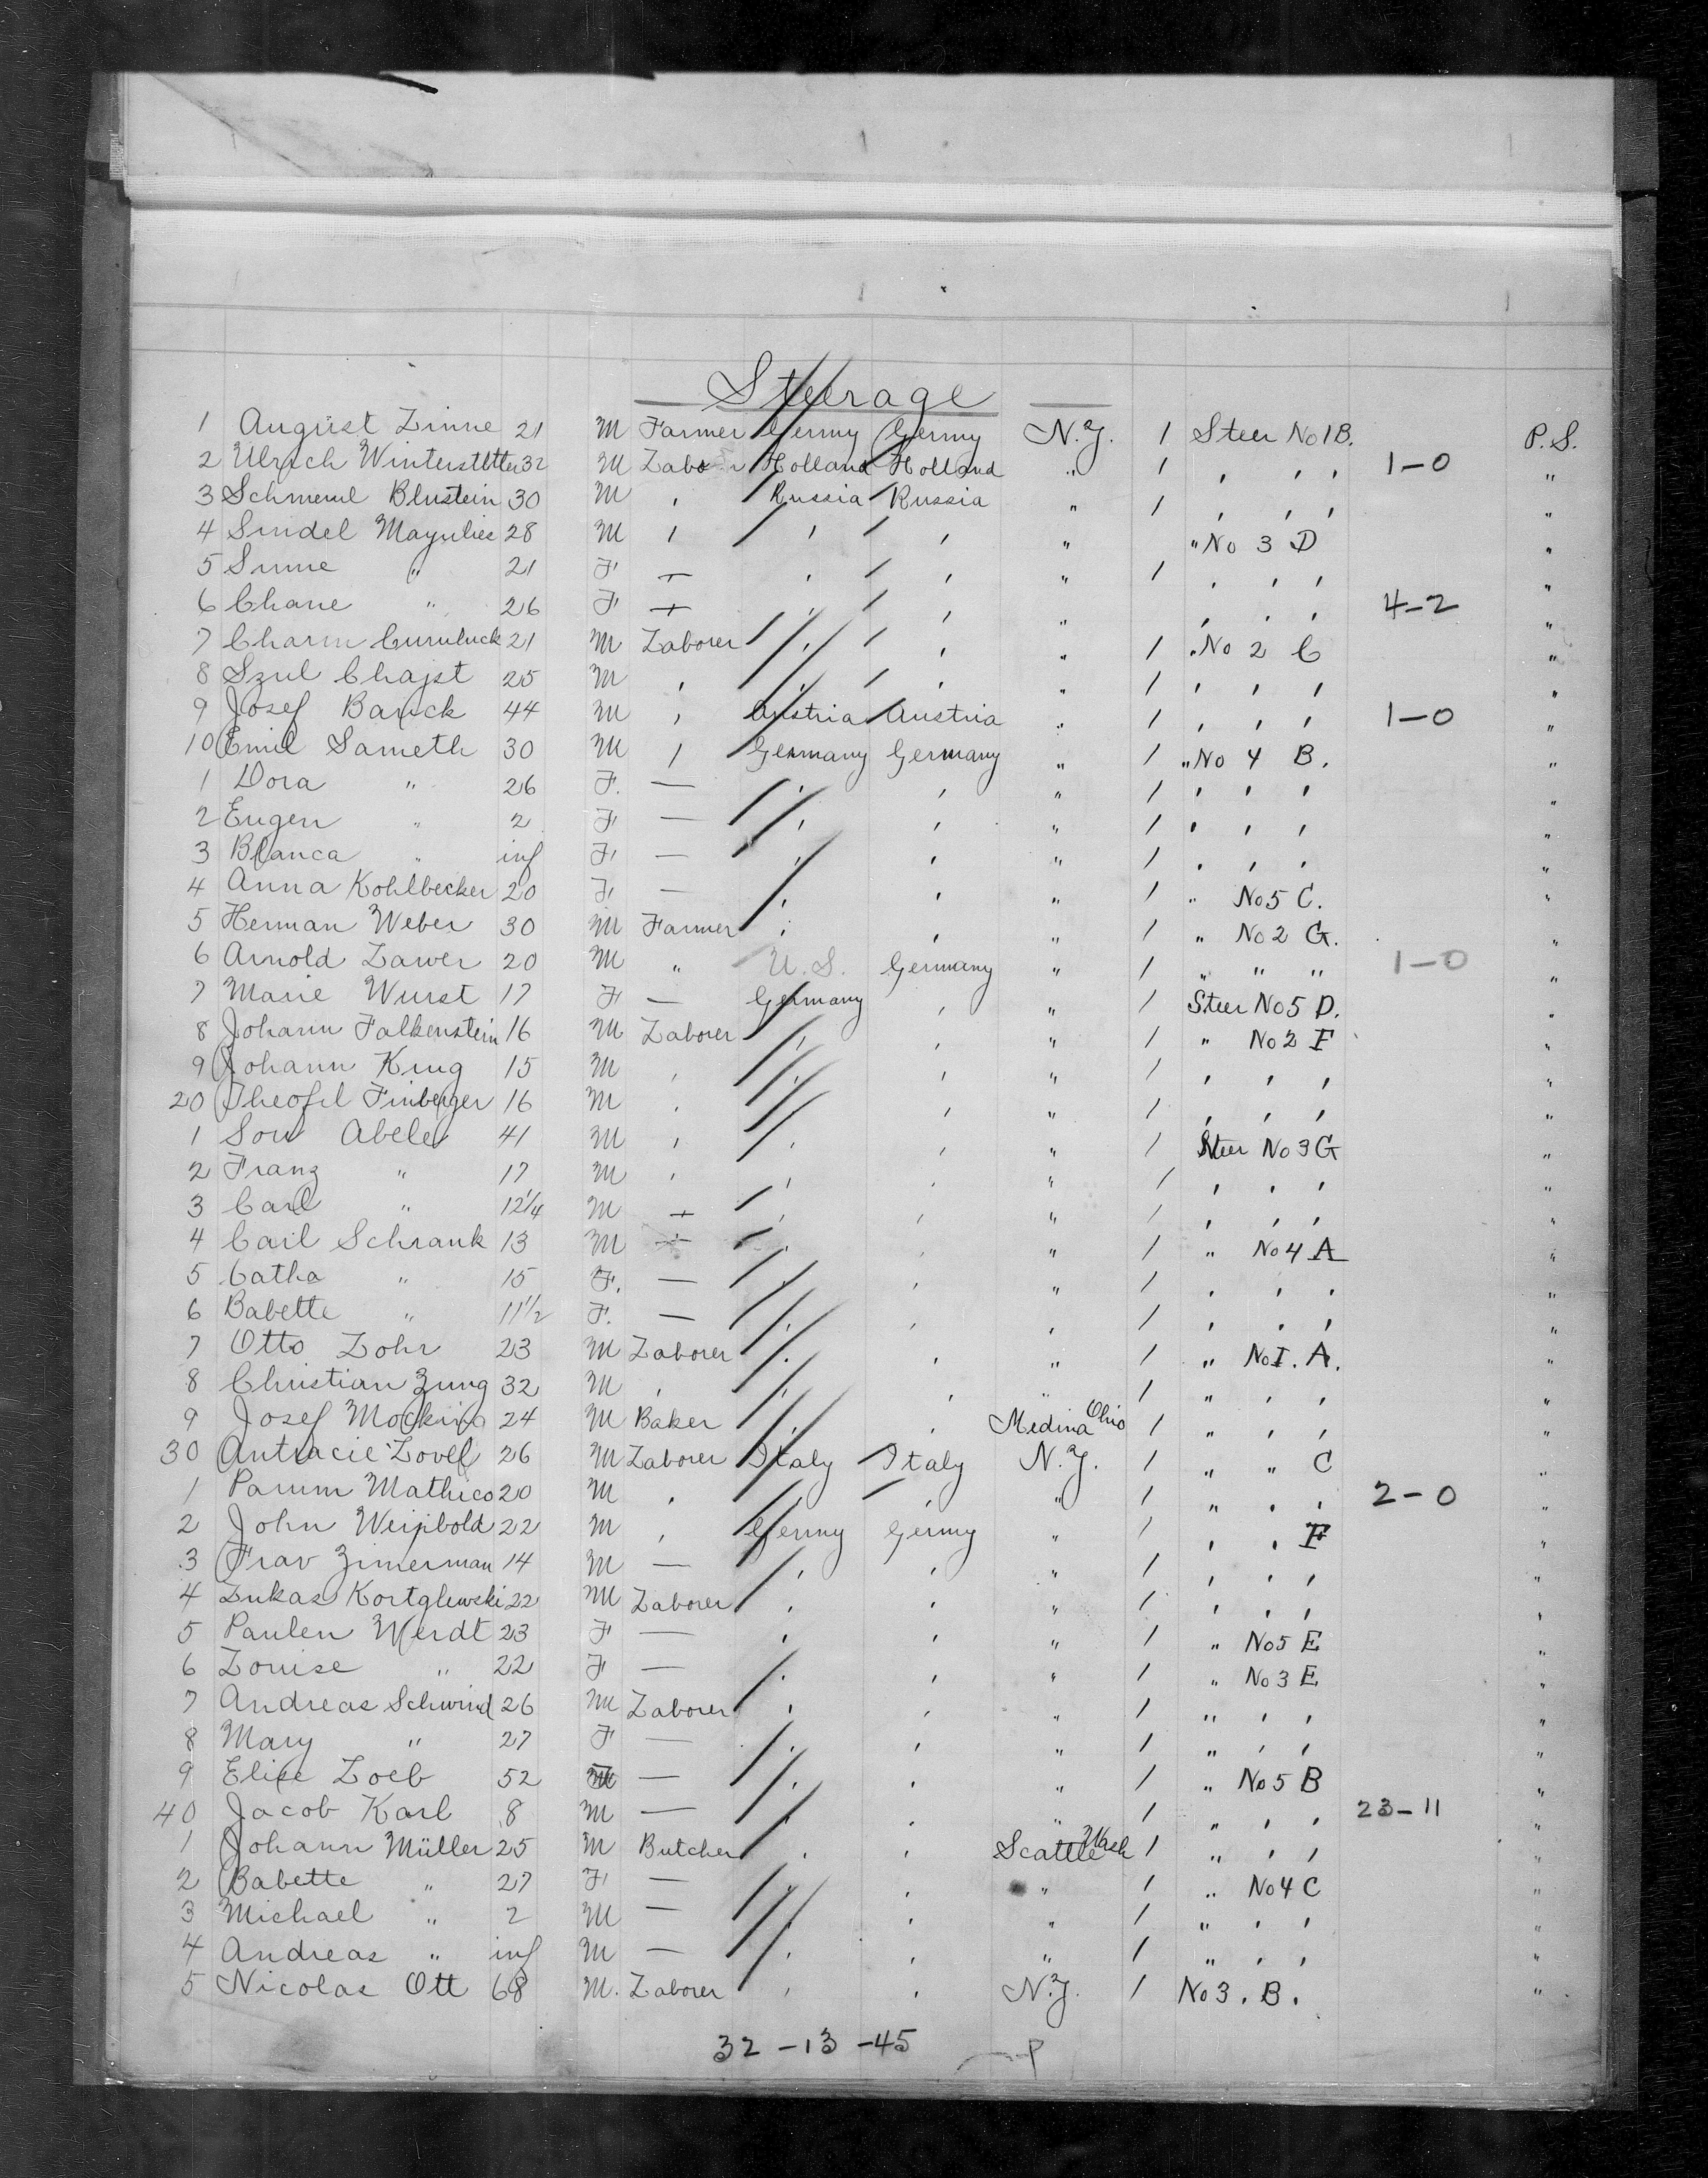 Steerage
1 August Zinne 21 M Farmer Germy Germy N.Y. 1 Steer No 1 B. P. S.
2 Ulrich Winterstetter 32 M Labo r Holland Holland " 1 , , , 1–0 "
3 Schmeml Blustein 30 M , Russia Russia " 1 , , , "
4 Sindel Mayulies 28 M , , , " " No 3 D "
5 Sune " 21 F — , , " 1 , , , "
6 Chane " 26 F — , , " , , , 4–2 "
7 Charm Curuluck 21 M Laborer , , " 1 " No 2 C "
8 Szul Chajst 25 M , , , " 1 , , , "
9 Josef Banck 44 M , Austria Austria " 1 , , , 1–0 "
10 Emil Sameth 30 M , Germany Germany " 1 " No 4 B. "
1 Dora " 26 F. — , , " 1 , , , "
2 Eugen " 2 F — , , " 1 , , , "
3 Blanca " inf F — , , " 1 , , , "
4 Anna Kohlbecker 20 F — , , " 1 " No 5 C. "
5 Herman Weber 30 M Farmer , , " 1 " No 2 G. "
6 Arnold Lawer 20 M " U. S. Germany " 1 " " " 1–0 "
7 Marie Wurst 17 F — Germany , " 1 Steer No 5 D. "
8 Johann Falkenstein 16 M Laborer , , " 1 " No 2 F "
9 Johann King 15 M , , , " 1 , , , "
20 Theofil Finberger 16 M , , , " 1 , , , "
1 Son Abele 41 M , , , " 1 Steer No 3 G "
2 Franz " 17 M , , , " 1 , , , "
3 Carl " 12 1/4 M — , , " 1 , , , "
4 Carl Schrank 13 M — , , " 1 " No 4 A "
5 Catha " 15 F. — , , " 1 , , , "
6 Babette " 11 1/2 F. — , , , 1 , , , "
7 Otto Lohr 23 M Laborer , , " 1 " No I. A. "
8 Christian Zung 32 M , , , " 1 " , , "
9 Josef Mockin 24 M Baker , , Medina Ohio 1 " , , "
30 Antracie Lovel 26 M Laborer Italy Italy N.Y. 1 " " C "
1 Parum Mathico 20 M , , , " 1 " , , 2–0 "
2 John Weipbold 22 M , Germy Germy " 1 , , F "
3 Frav Zimerman 14 M — , , " 1 , , , "
4 Lukas Kortglewski 22 M Laborer , , " 1 , , , "
5 Paulen Werdt 23 F — , , " 1 " No 5 E "
6 Louise " 22 F — , , " 1 " No 3 E "
7 Andreas Schwind 26 M Laborer , , " 1 " , , "
8 Mary " 27 F — , , " 1 " , , "
9 Elise Loeb 52 F — , , " 1 " No 5 B "
40 Jacob Karl 8 M — , , " 1 " , , 23–11 "
1 Johann Müller 25 M Butcher , , Seattle Wash 1 " , , "
2 Babette " 27 F — , , " 1 " No 4 C "
3 Michael " 2 M — , , " 1 " , , "
4 Andreas " inf M — , , " 1 " , , "
5 Nicolas Ott 68 M. Laborer , , N.Y. 1 No 3. B. "
32 – 13 – 45